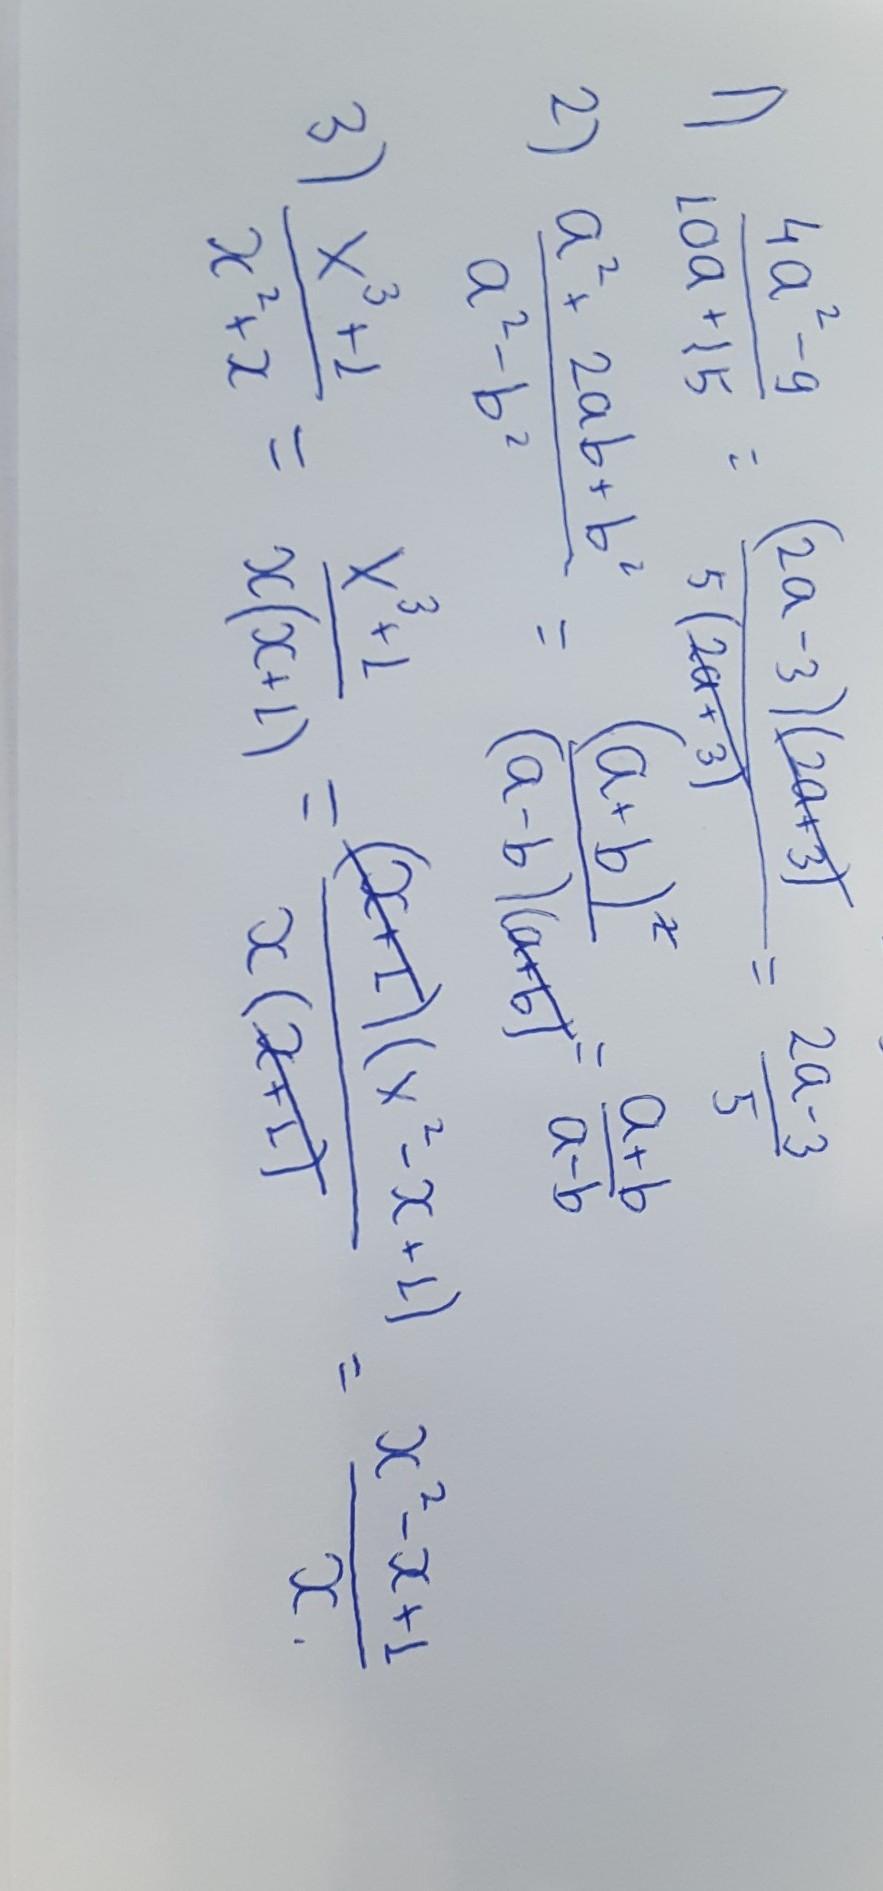 1) (4a² - 9)/(10a + 15) = ((2a - 3)(2a + 3))/(5(2a + 3)) = (2a - 3)/5
2) (a² + 2ab + b²)/(a² - b²) = (a + b)²/((a - b)(a + b)) = (a + b)/(a - b)
3) (x³ + 1)/(x² + x) = (x³ + 1)/(x(x + 1)) = ((x + 1)(x² - x + 1))/(x(x + 1)) = (x² - x + 1)/x.